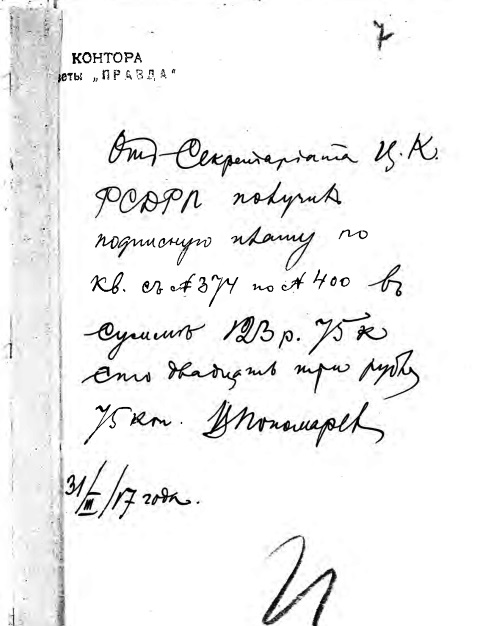 7
КОНТОРА
зеты „ПРАВДА"
Отъ Секретаріата Ц.К.
РСДРП получилъ
подписную плату по
кв. съ № 374 по № 400 въ
суммѣ 123 р. 75 к
сто двадцать три рубля
75 коп. Пономарев
31/III/17 года.